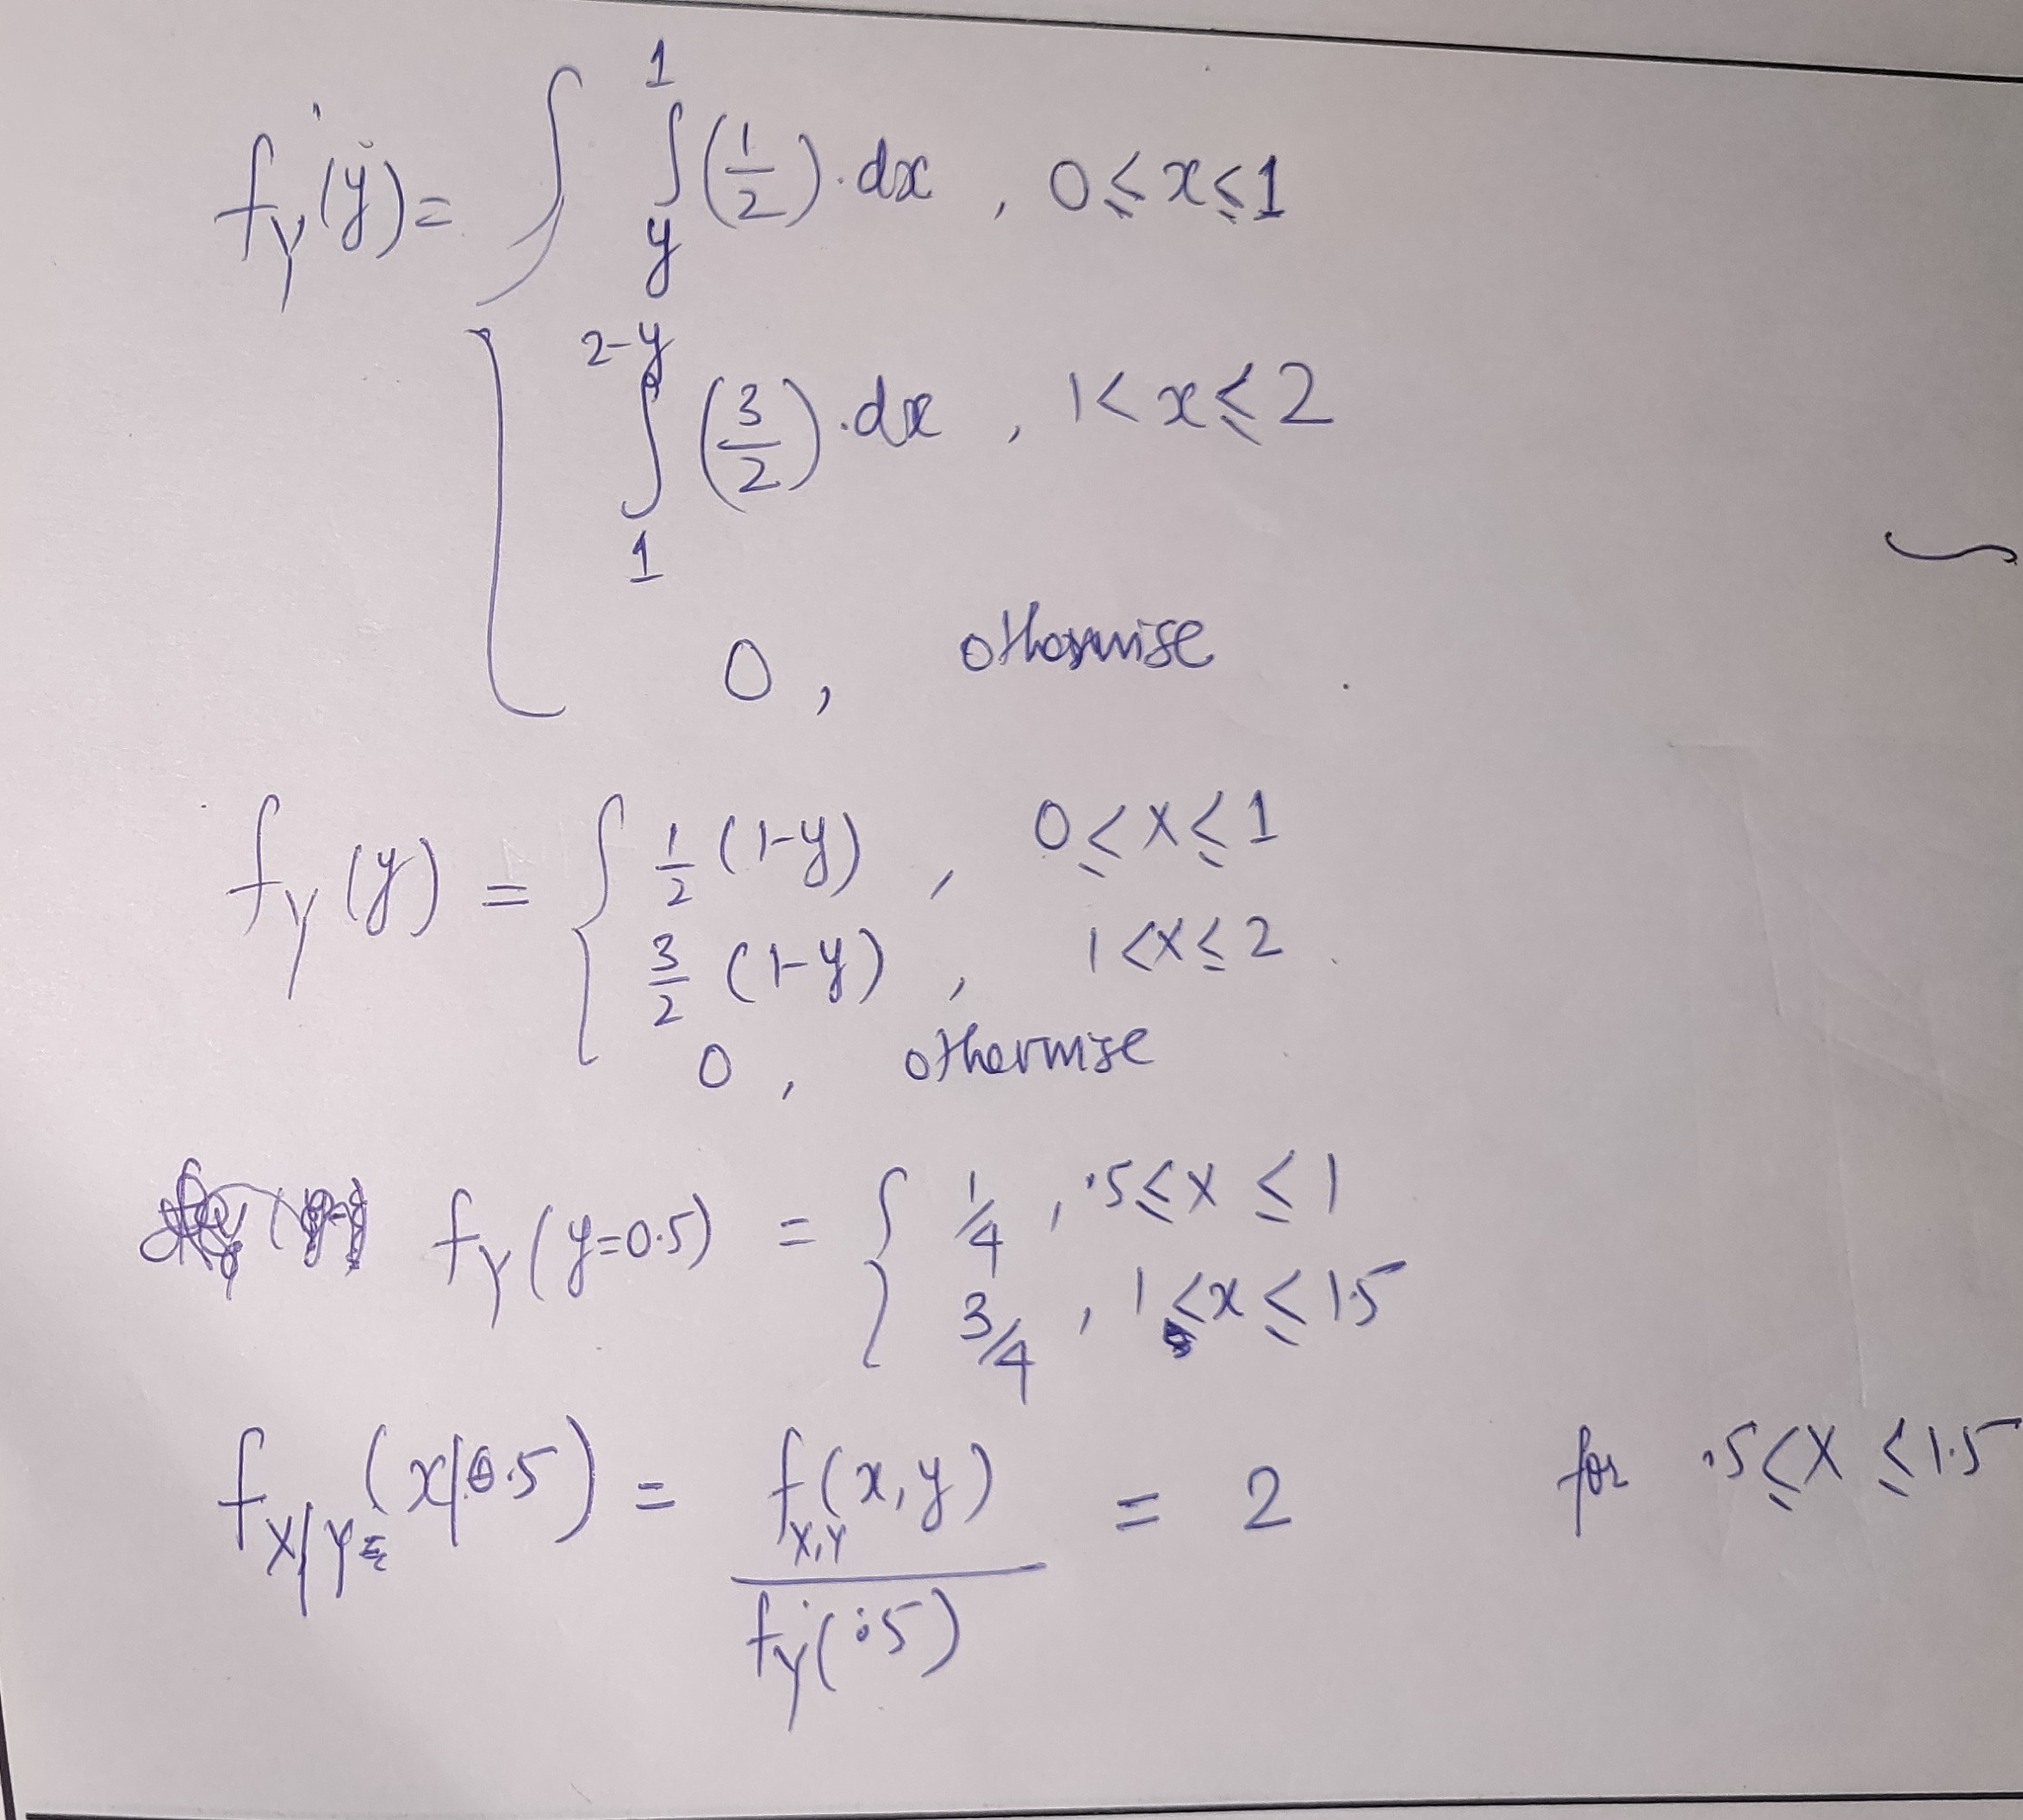 f_Y(y) = { ∫_y^1 (1/2).dx , 0≤x≤1
∫_1^{2-y} (3/2).dx , 1<x≤2
0, otherwise
f_Y(y) = { 1/2 (1-y) , 0≤x≤1
3/2 (1-y) , 1<x≤2
0, otherwise
f_Y(y=0.5) = { 1/4 , .5≤x≤1
3/4 , 1<x≤1.5
f_{X/Y=}(x/0.5) = f_{X,Y}(x,y) / f_Y(.5) = 2 for .5≤x≤1.5